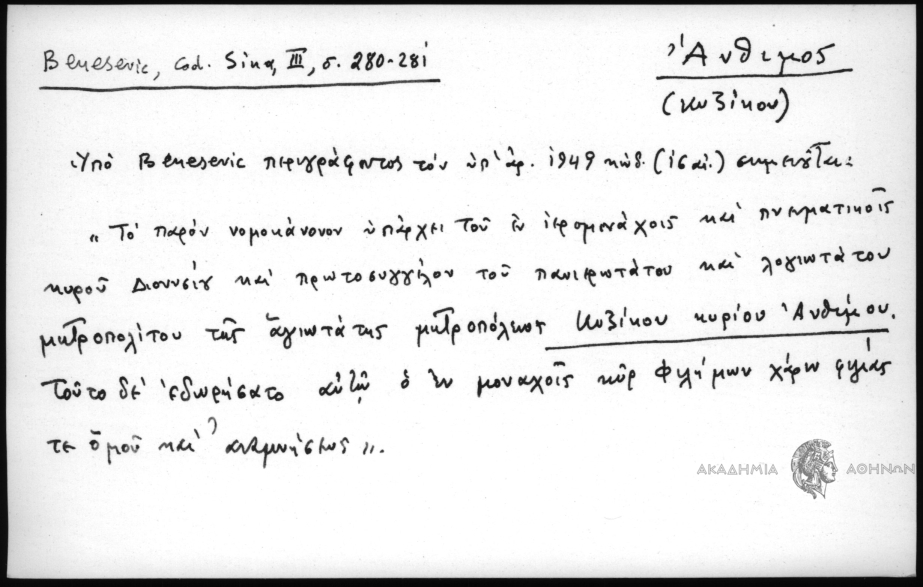 Benesevic, Cod. Sina, III, σ. 280-281
Ἄνθιμος
(Κυζίκου)
Ὑπὸ Benesevic περιγράφοντος τόν ὑπ' ἀρ. 1949 κώδ. (ις αἰ.) σημειοῦται:
„Τό παρόν νομοκάνονον ὑπάρχει τοῦ ἐν ἱερομονάχοις καί πνευματικοῖς
κυροῦ Διονυσίου καί πρωτοσυγγέλου τοῦ πανιερωτάτου καί λογιωτάτου
μητροπολίτου τῆς ἁγιωτάτης μητροπόλεως Κυζίκου κυρίου Ἀνθίμου.
Τοῦτο δέ ἐδωρήσατο αὐτῷ ὁ ἐν μοναχοῖς κῦρ Φιλήμων χάριν φιλίας
τε ὁμοῦ καί ἀναμνήσεως".
ΑΚΑΔΗΜΙΑ ΑΘΗΝΩΝ